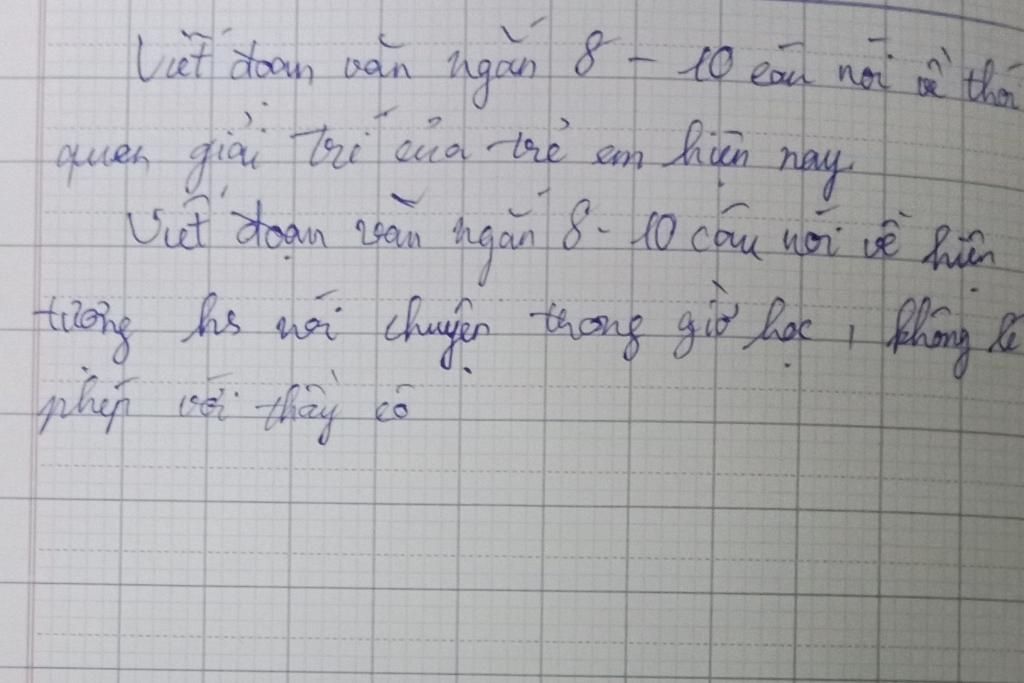 Viết đoạn văn ngắn 8 - 10 câu nói về thói
quen giải trí của trẻ em hiện nay.
Viết đoạn văn ngắn 8 - 10 câu nói về hiện
tượng hs nói chuyện trong giờ học, không lễ
phép với thầy cô